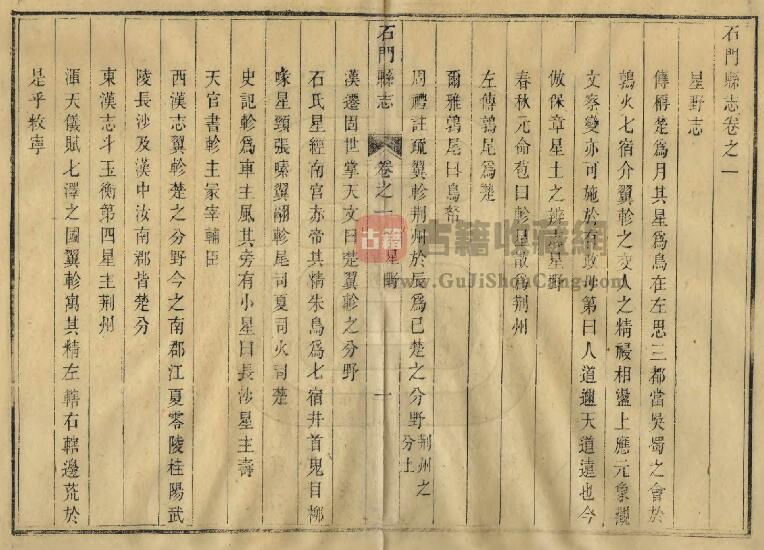 石門縣志卷之一
星野志
傳稱楚為月其星為鳥在左思三都當吳蜀之會於
鶉火七宿介翼軫之交人之精祲相盪上應元象觀
文察變亦可施於有政毋第曰人道邇天道遠也今
倣保章星土之辨志星野
春秋元命苞曰軫星散為荊州
左傳鶉尾為楚
爾雅鶉尾曰鳥帑
周禮註疏翼軫荊州於辰為巳楚之分野荊州之分土
石門縣志 卷之一 星野 一
漢遷固世掌天文曰楚翼軫之分野
石氏星經南宮赤帝其精朱鳥為七宿井首鬼目柳
喙星頸張嗉翼翮軫尾司夏司火司楚
史記軫為車主風其旁有小星曰長沙星主壽
天官書軫主冢宰輔臣
西漢志翼軫楚之分野今之南郡江夏零陵桂陽武
陵長沙及漢中汝南郡皆楚分
東漢志斗玉衡第四星主荊州
渾天儀賦七澤之國翼軫寓其精左轄右轄邊荒於
是乎敉寧
古籍
古籍收藏網
www.GuJiShouCang.com